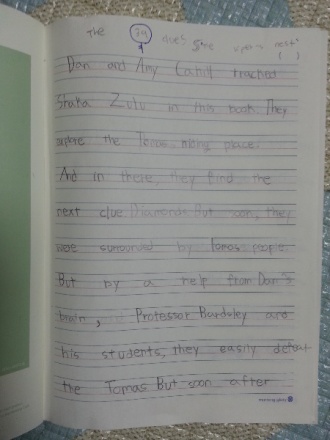 The 39 clues
Dan and Amy Cahill tracked
Shaka Zulu in this book. They
explore the Tomas place.
And in there, they find the
next clue Diamonds. But soon, they
were surrounded by Tomas people.
But by a help from Dan's
brain, Professor Bardsley and
his students, they easily defeat
the Tomas. But soon after